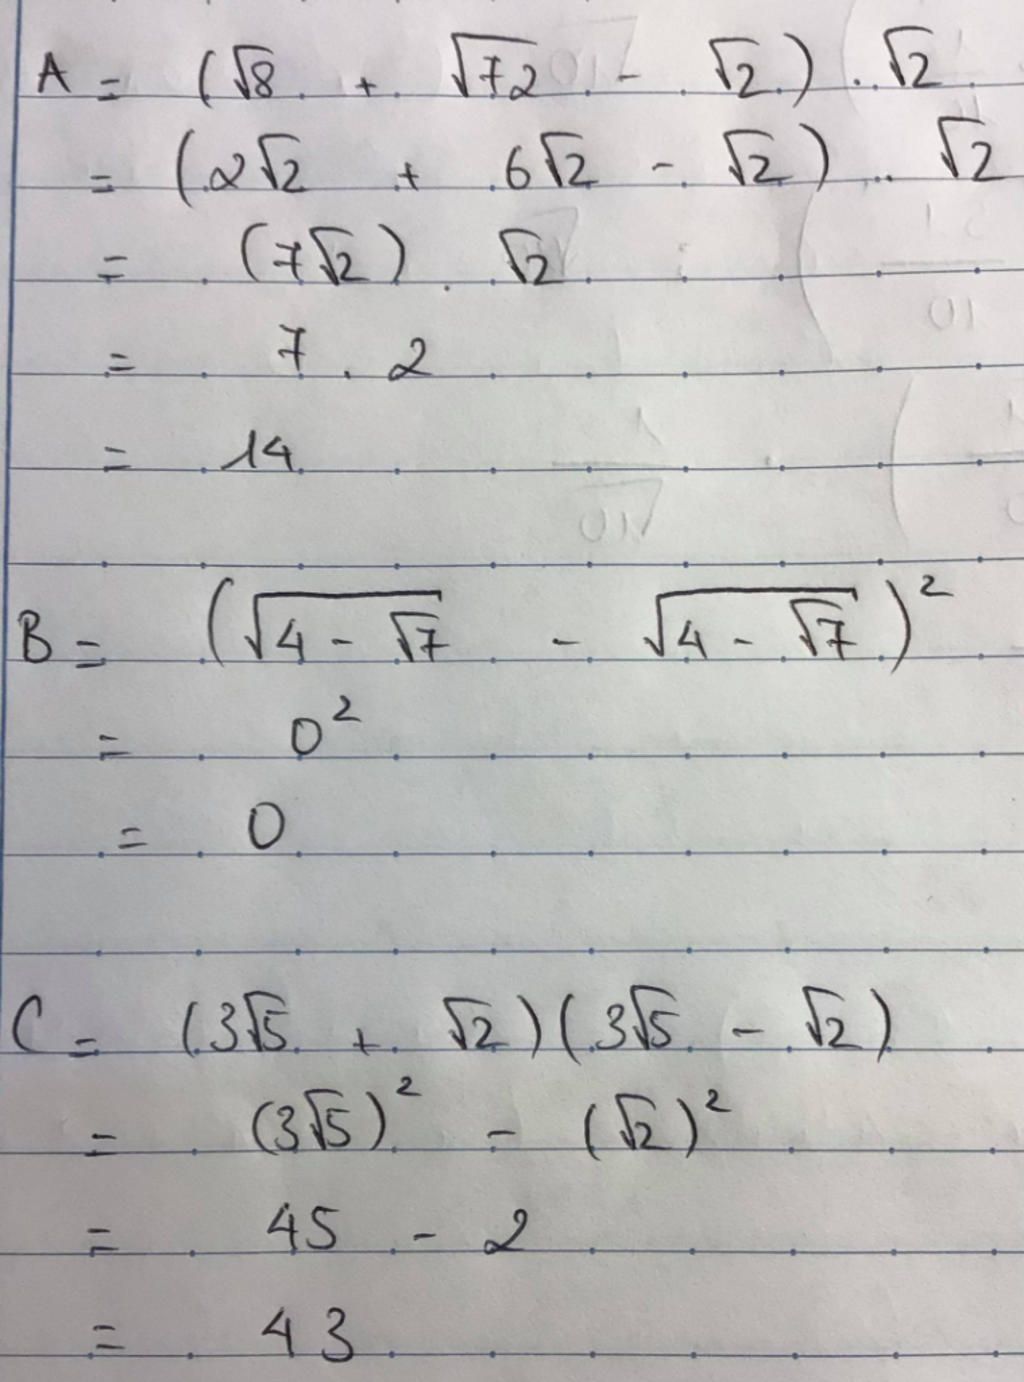 A = (√8 + √72 - √2) . √2
= (2√2 + 6√2 - √2) . √2
= (7√2) . √2
= 7 . 2
= 14
B = (√(4 - √7) - √(4 - √7))²
= 0²
= 0
C = (3√5 + √2)(3√5 - √2)
= (3√5)² - (√2)²
= 45 - 2
= 43